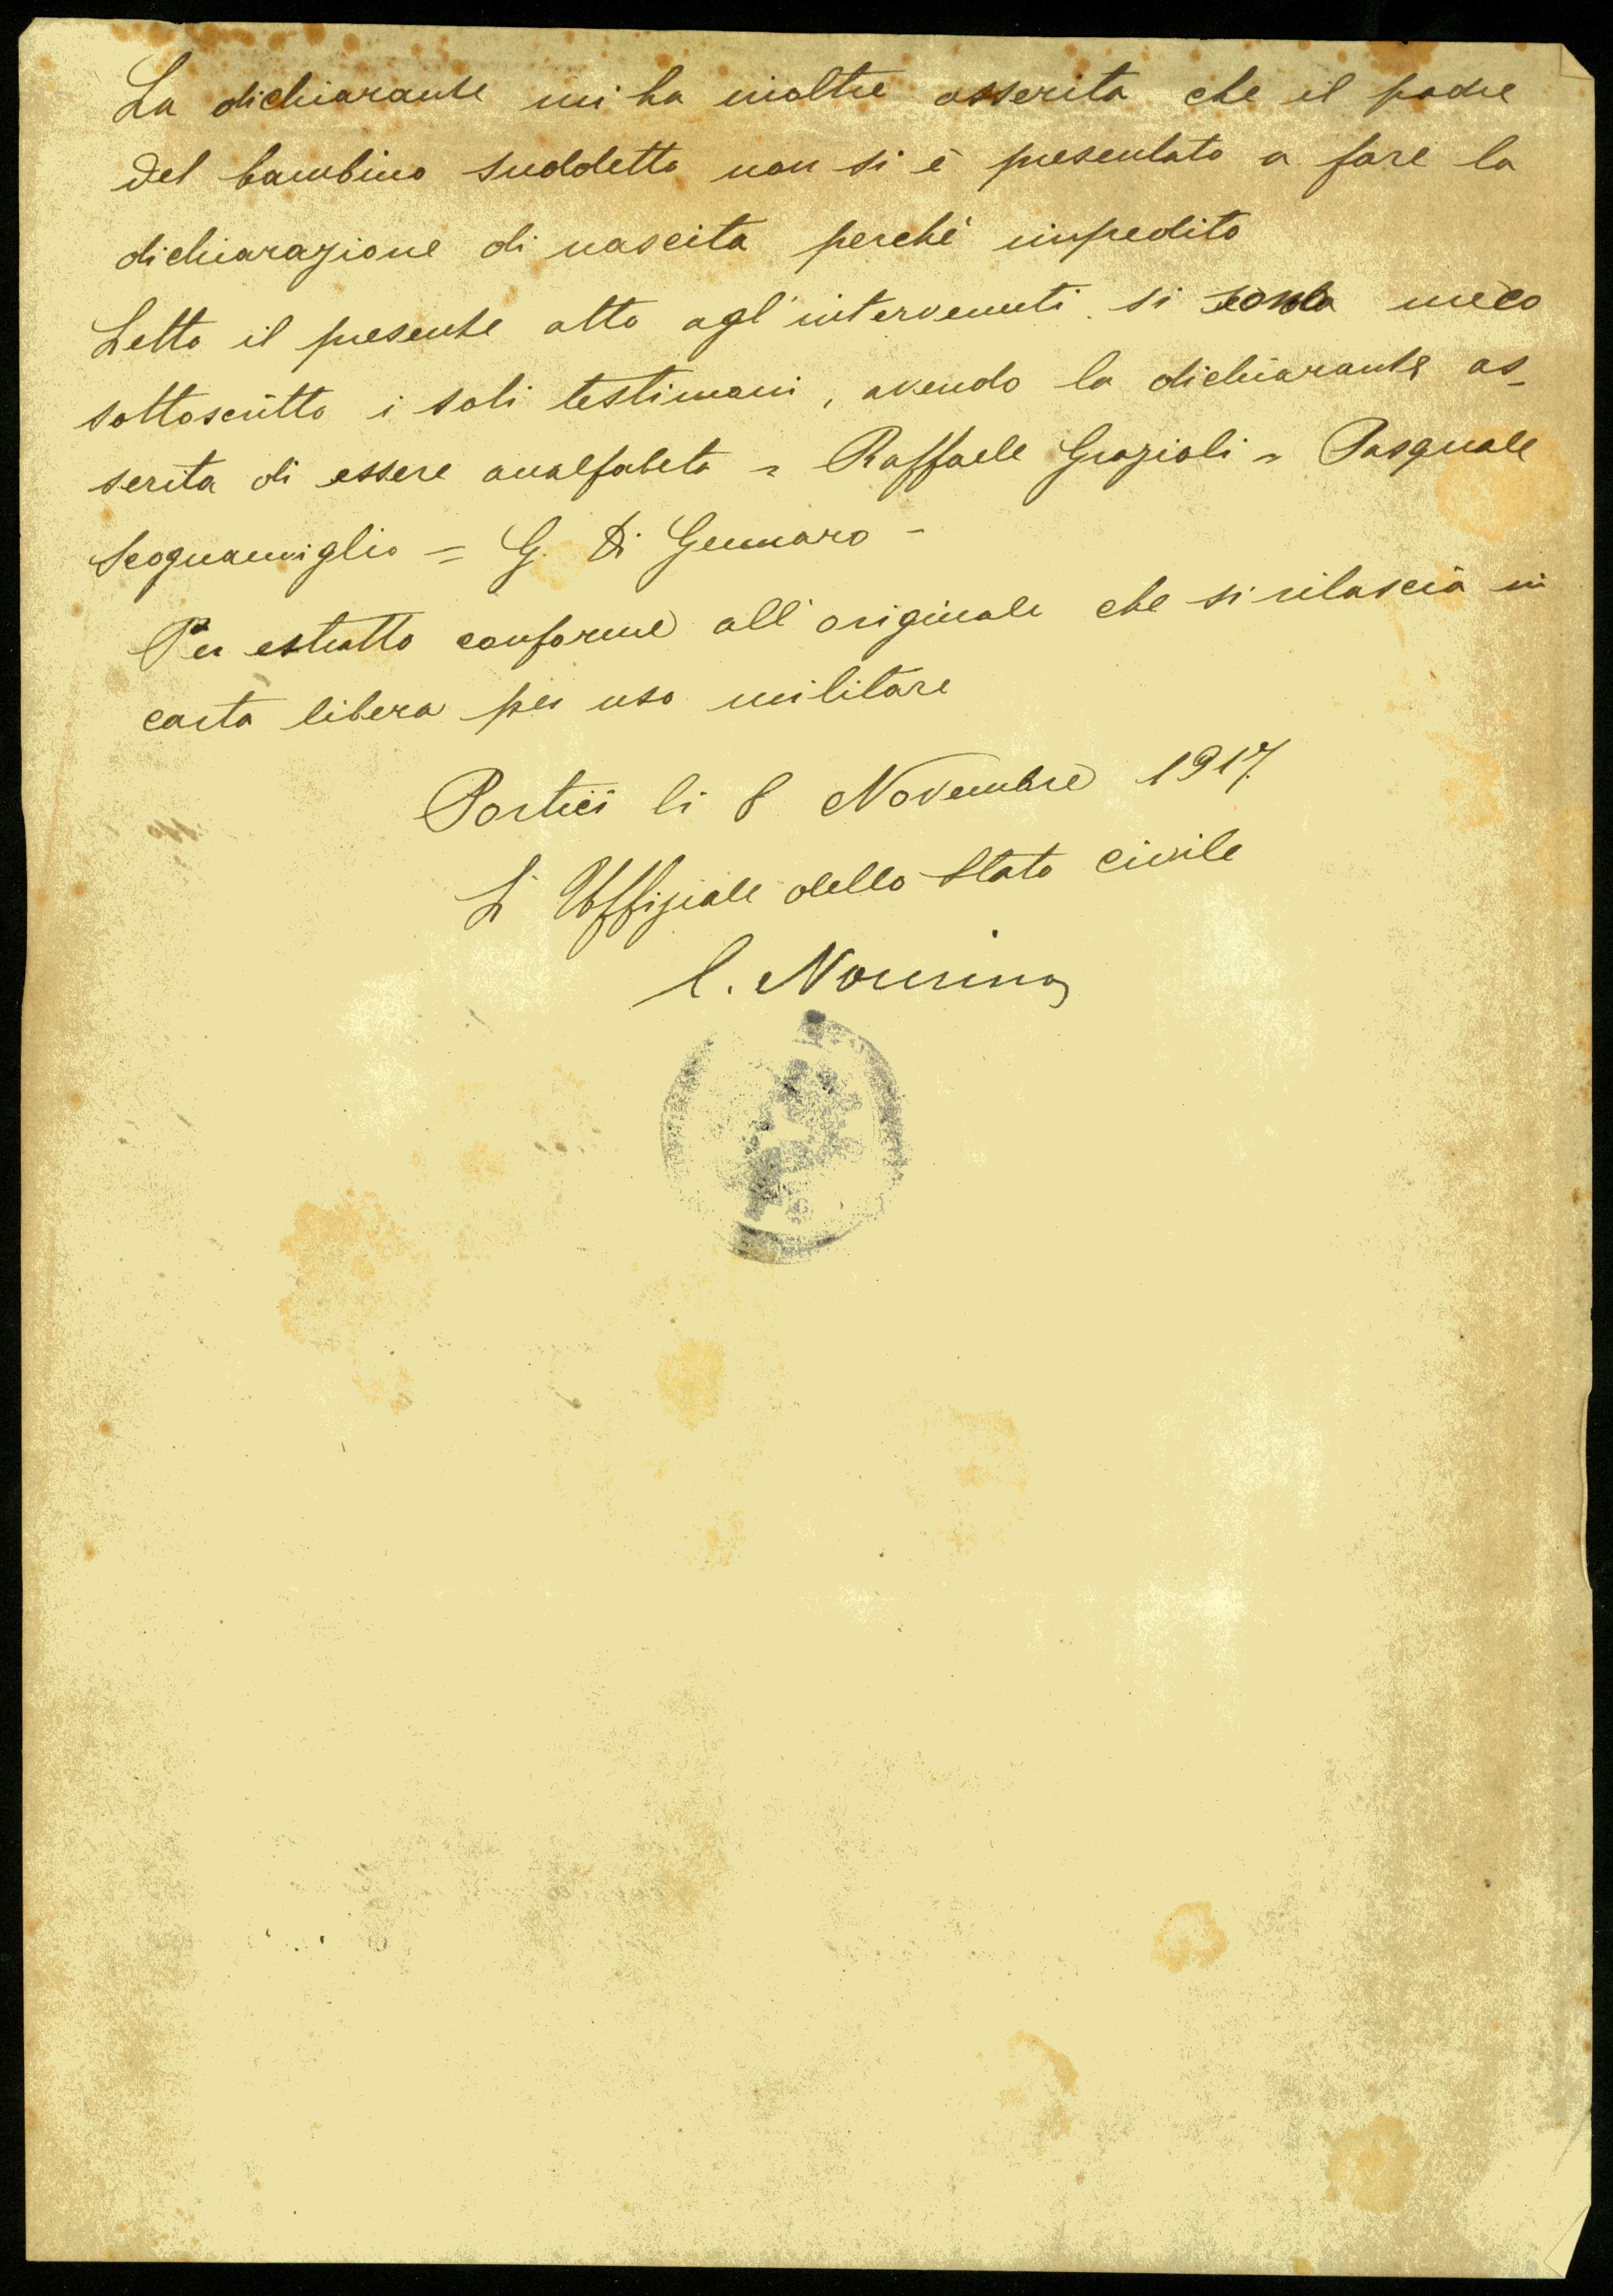 La dichiarante mi ha inoltre asserita che il padre
del bambino suddetto non si è presentato a fare la
dichiarazione di nascita perché impedito
Letto il presente atto agl'intervenuti si meco
sottoscritto i soli testimoni, avendo la dichiarante as_
serita di essere analfabeta = Raffaele Grazioli = Pasquale
Scognamiglio = G. Di Gennaro -
Per estratto conforme all'originale che si rilascia in
carta libera per uso militare
Portici li 8 Novembre 1917.
L'Uffiziale dello Stato Civile